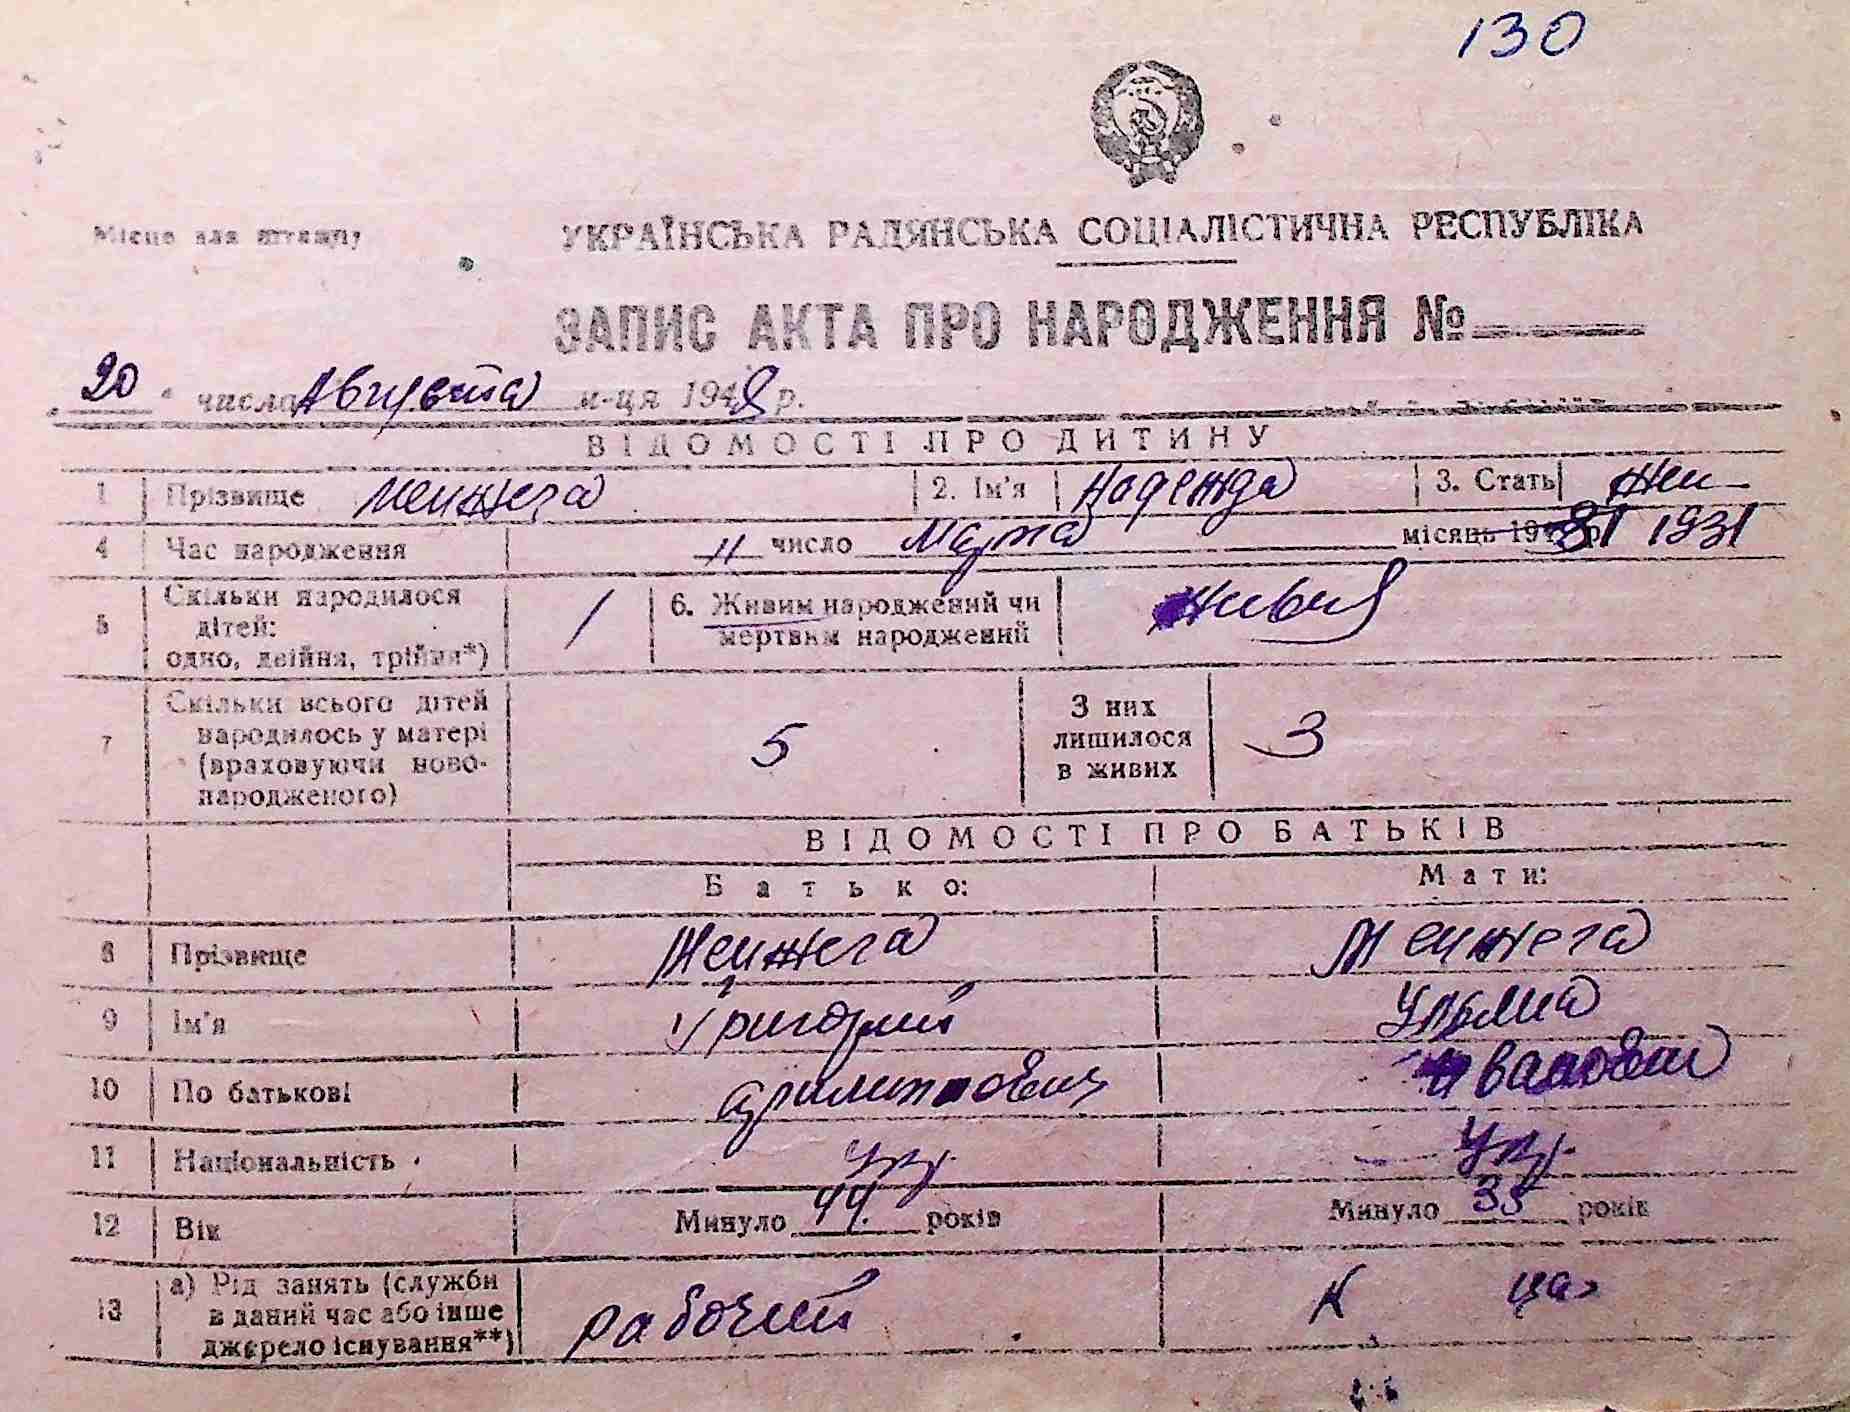 130
Місце для штампу
УКРАЇНСЬКА РАДЯНСЬКА СОЦІАЛІСТИЧНА РЕСПУБЛІКА
ЗАПИС АКТА ПРО НАРОДЖЕННЯ №
20 числа Августа м-ця 1948 р.
ВІДОМОСТІ ПРО ДИТИНУ
1 Прізвище Менжега 2. Ім'я Надежда 3. Стать жен
4 Час народження 11 число Марта місяць 1931
5 Скільки народилося дітей: одно, двійня, трійня*) 1 6. Живим народжений чи мертвим народжений живая
7 Скільки всього дітей народилось у матері (враховуючи новонародженого) 5 З них лишилося в живих 3
ВІДОМОСТІ ПРО БАТЬКІВ
Батько: Мати:
8 Прізвище Менжега Менжега
9 Ім'я Григорий Ульяна
10 По батькові Ивановна
11 Національність Укр. Укр.
12 Вік Минуло 44. років Минуло 35 років
13 а) Рід занять (служби в даний час або інше джерело існування**) рабочий